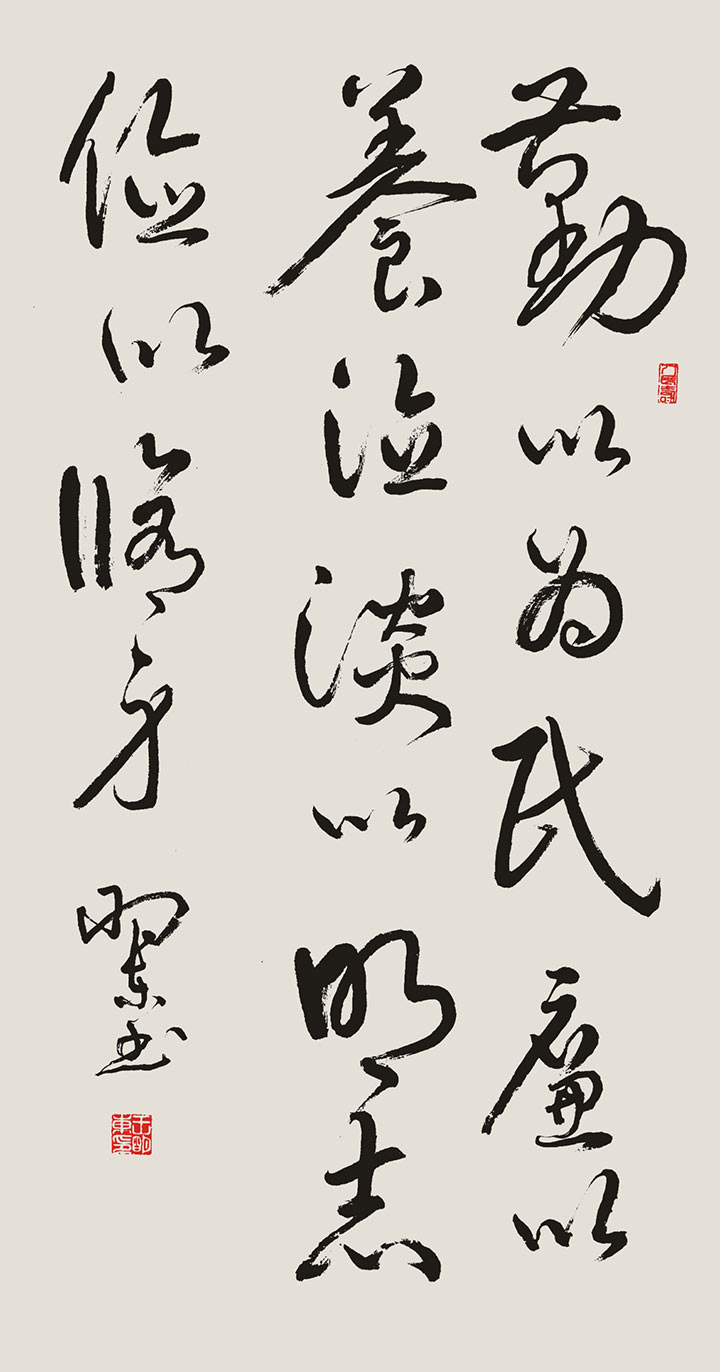 勤以为民廉以
養德淡以明志
俭以修身 明东书